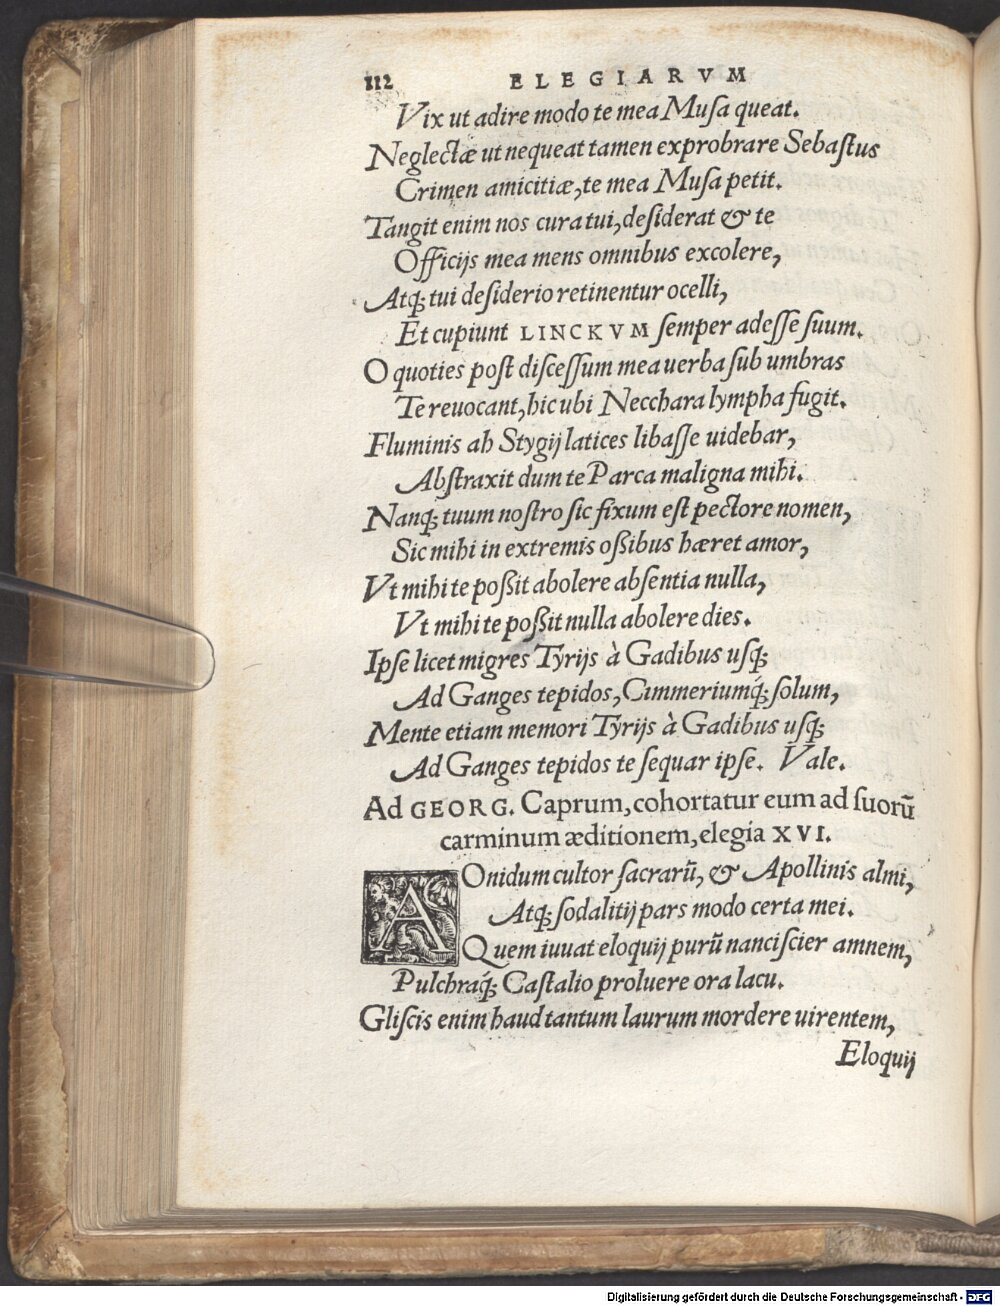 112 ELEGIARVM
Vix ut adire modo te mea Musa queat.
Neglectæ ut nequeat tamen exprobrare Sebastus
Crimen amicitiæ, te mea Musa petit.
Tangit enim nos cura tui, desiderat & te
Officijs mea mens omnibus excolere,
Atq́; tui desiderio retinentur ocelli,
Et cupiunt LINCKVM semper adesse suum.
O quoties post discessum mea uerba sub umbras
Te reuocant, hic ubi Necchara lympha fugit.
Fluminis ah Stygij latices libasse uidebar,
Abstraxit dum te Parca maligna mihi.
Nanq́; tuum nostro sic fixum est pectore nomen,
Sic mihi in extremis oßibus hæret amor,
Vt mihi te poßit abolere absentia nulla,
Vt mihi te poßit nulla abolere dies.
Ipse licet migres Tyrijs à Gadibus usq;
Ad Ganges tepidos, Cimmeriumq́; solum,
Mente etiam memori Tyrijs à Gadibus usq;
Ad Ganges tepidos te sequar ipse. Vale.
Ad GEORG. Caprum, cohortatur eum ad suorū
carminum æditionem, elegia XVI.
AOnidum cultor sacrarū, & Apollinis almi,
Atq́; sodalitij pars modo certa mei.
Quem iuuat eloquij purū nanciscier amnem,
Pulchraq́; Castalio proluere ora lacu.
Gliscis enim haud tantum laurum mordere uirentem,
Eloquij
Digitalisierung gefördert durch die Deutsche Forschungsgemeinschaft - DFG